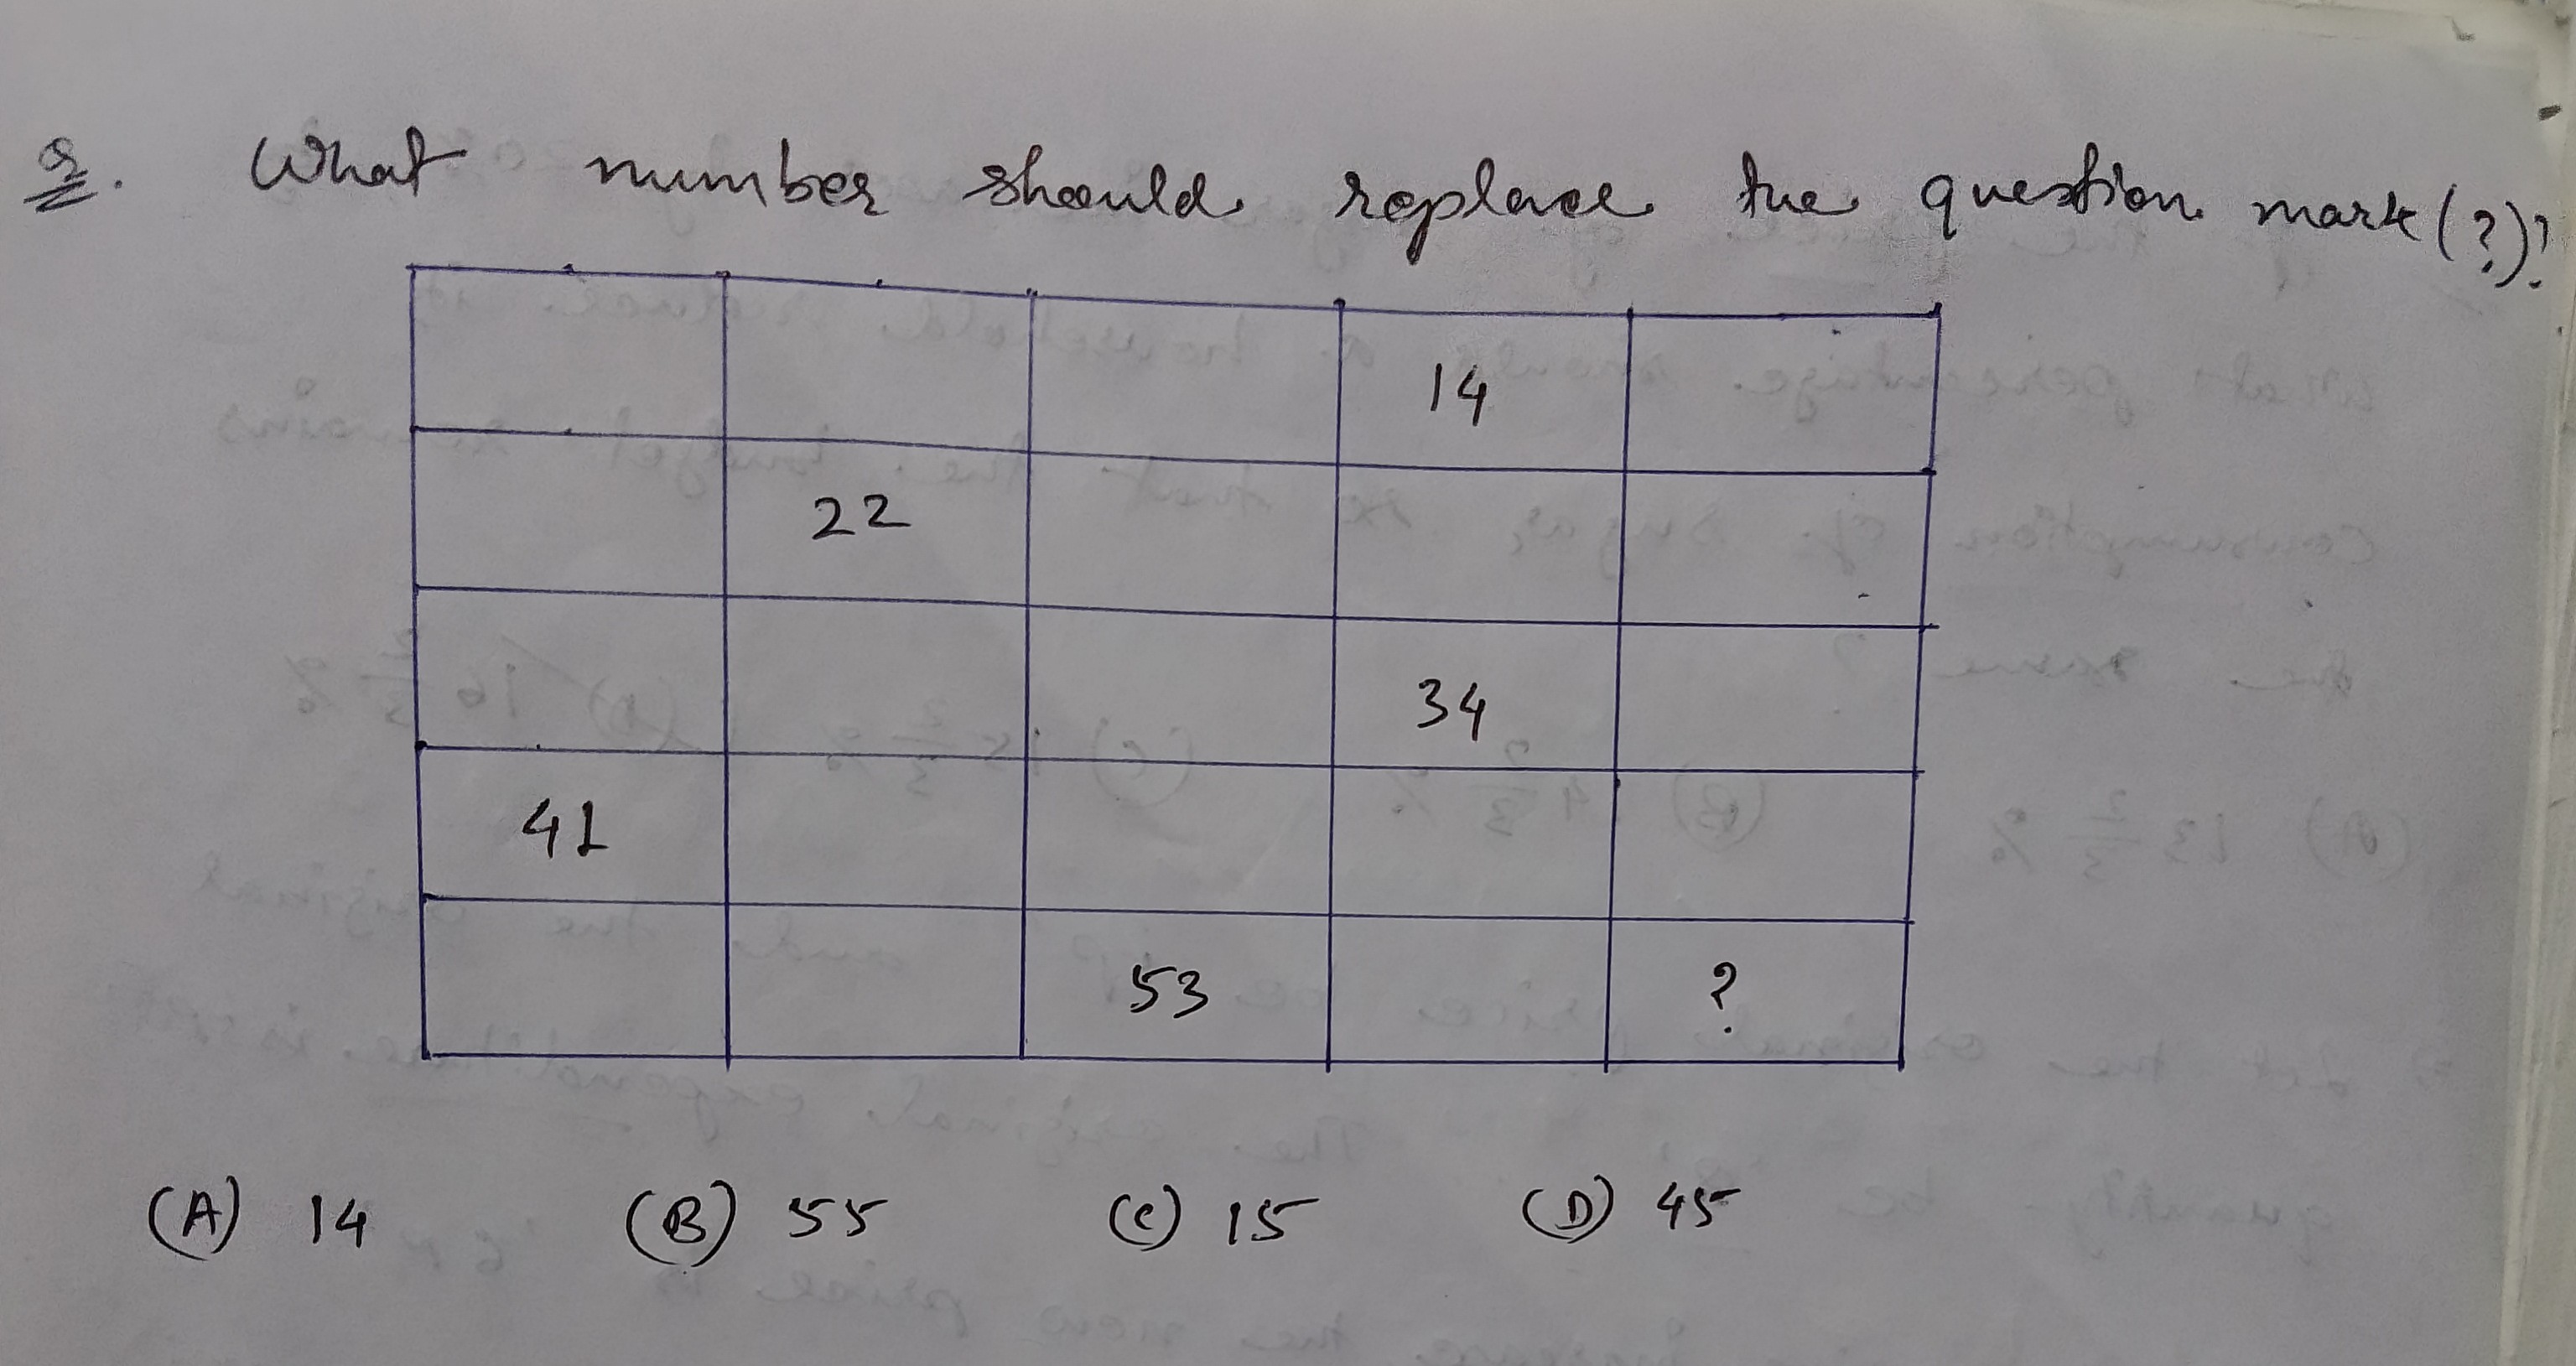 Q. What number should replace the question mark (?)?
14
22
34
41
53 ?
(A) 14 (B) 55 (C) 15 (D) 45